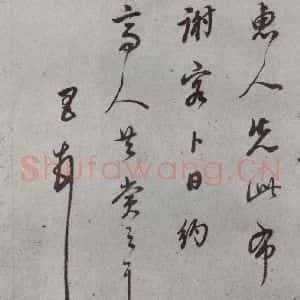 惠人先此布
谢客卜日约
高人共赏之耳
Shufawang.CN